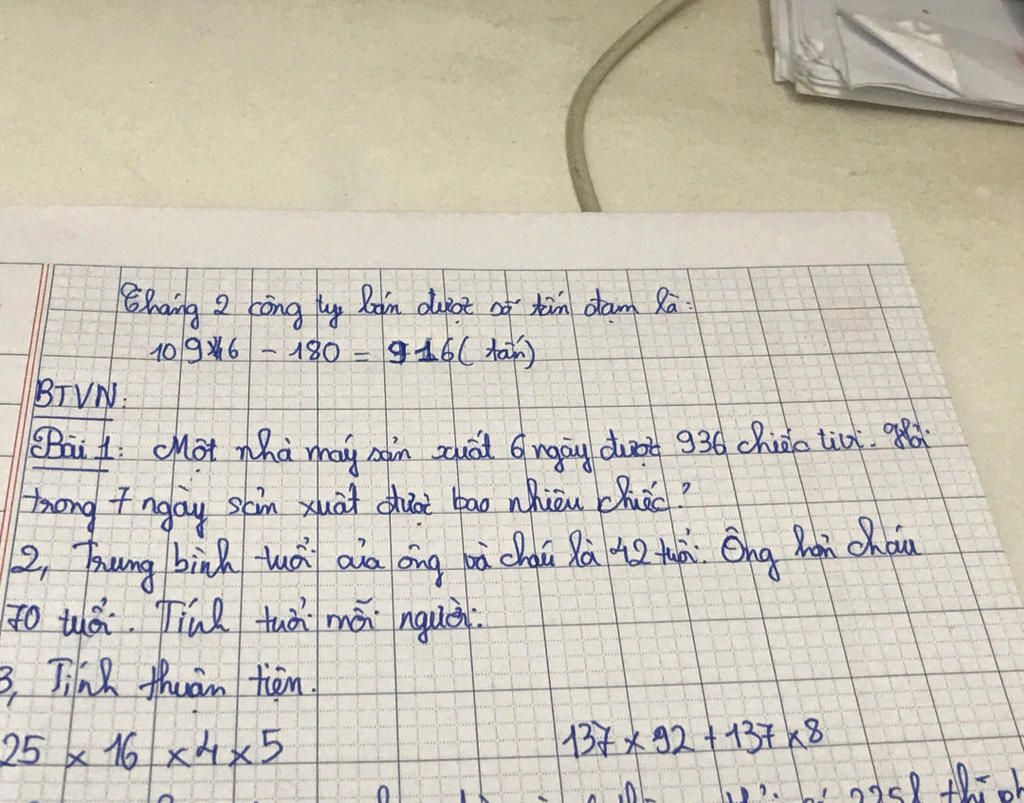 Tháng 2 công ty bán được số tấn đạm là:
10946 - 180 = 916 (tấn)
BTVN:
Bài 1: Một nhà máy sản xuất 6 ngày được 936 chiếc tivi. Hỏi
trong 7 ngày sản xuất được bao nhiêu chiếc?
2, Trung bình tuổi của ông và cháu là 42 tuổi. Ông hơn cháu
70 tuổi. Tính tuổi mỗi người.
3, Tính thuận tiện.
25 x 16 x 4 x 5
137 x 92 + 137 x 8